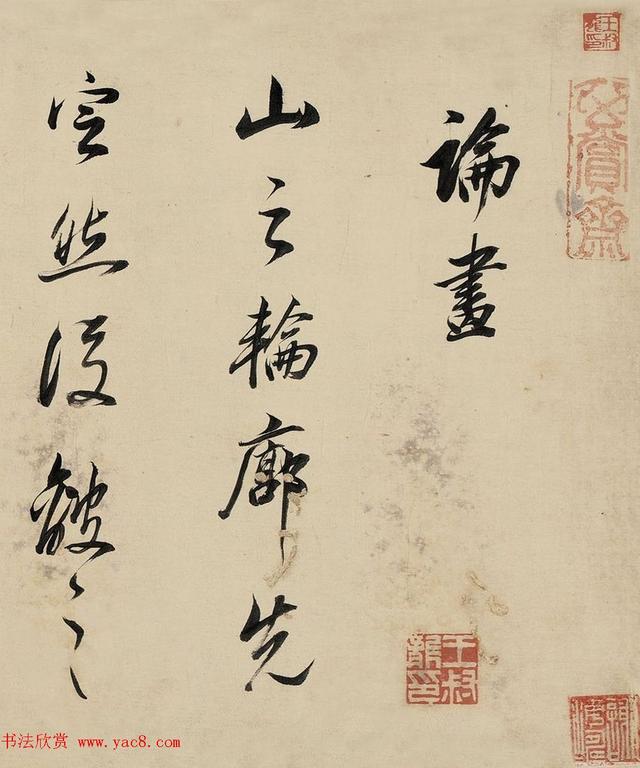 論畫
山之輪廓先
定然後皴之
书法欣赏 www.yac8.com